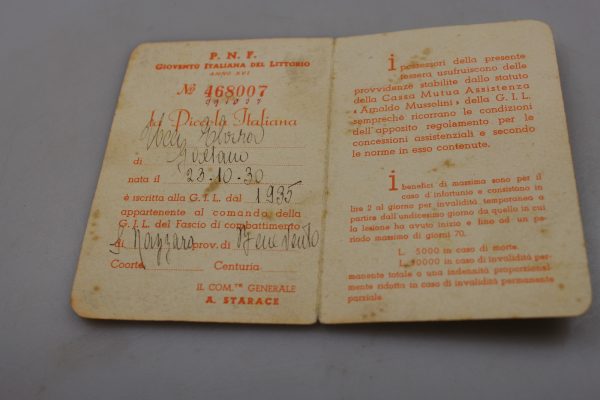 P. N. F.
GIOVENTÙ ITALIANA DEL LITTORIO
ANNO XVI
Nº 468007
la Piccola Italiana
di Gaetano
nata il 23-10-30
è iscritta alla G.I.L. dal 1935
appartenente al comando della
G.I.L. del Fascio di combattimento
di S. Nazzaro prov. di Benevento
Coorte Centuria
IL COM.TE GENERALE
A. STARACE
i possessori della presente
tessera usufruiscono delle
provvidenze stabilite dallo statuto
della Cassa Mutua Assistenza
« Arnaldo Mussolini » della G.I.L.
semprechè ricorrano le condizioni
dell'apposito regolamento per le
concessioni assistenziali e secondo
le norme in esso contenute.
i benefici di massima sono per il
caso d'infortunio e consistono in
lire 2 al giorno per invalidità temporanea a
partire dall'undicesimo giorno da quello in cui
la lesione ha avuto inizio e fino ad un pe-
riodo massimo di giorni 70.
L. 5000 in caso di morte.
L. 20000 in caso di invalidità per-
manente totale o una indennità proporzional-
mente ridotta in caso di invalidità permanente
parziale